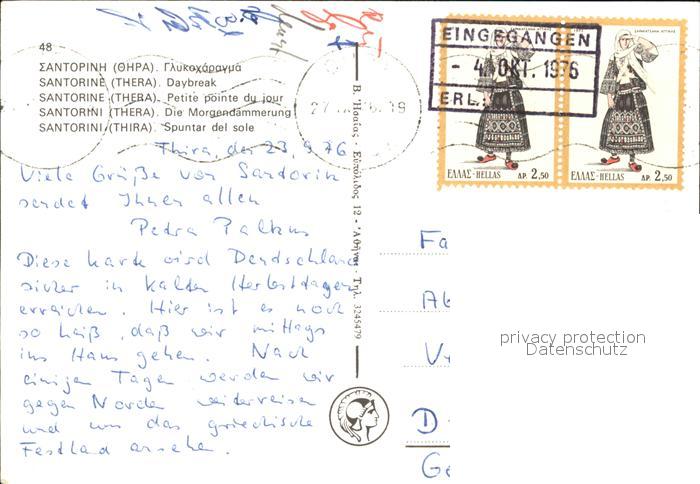 48
ΣΑΝΤΟΡΙΝΗ (ΘΗΡΑ). Γλυκοχάραγμα
SANTORINE (THERA). Daybreak
SANTORINE (THERA). Petite pointe du jour
SANTORINI (THERA). Die Morgendämmerung
SANTORINI (THIRA). Spuntar del sole
Thira, den 23.9.76
Viele Grüße von Santorin
sendet Ihnen allen
Petra
Diese Karte wird Deutschland
sicher in kalten Herbsttagen
erreichen. Hier ist es noch
so heiß, daß wir mittags
ins Haus gehen. Nach
einigen Tagen werden wir
gegen Norden weiterreisen
und uns das griechische
Festland ansehen.
Β. Ἡσαΐας - Εὐπόλιδος 12 - Ἀθῆναι - Τηλ. 3245479
EINGEGANGEN
- 4. OKT. 1976
ERL.:
ΕΛΛΑΣ-HELLAS ΔΡ. 2,50
ΕΛΛΑΣ-HELLAS ΔΡ. 2,50
Fa
Ab
D
privacy protection
Datenschutz